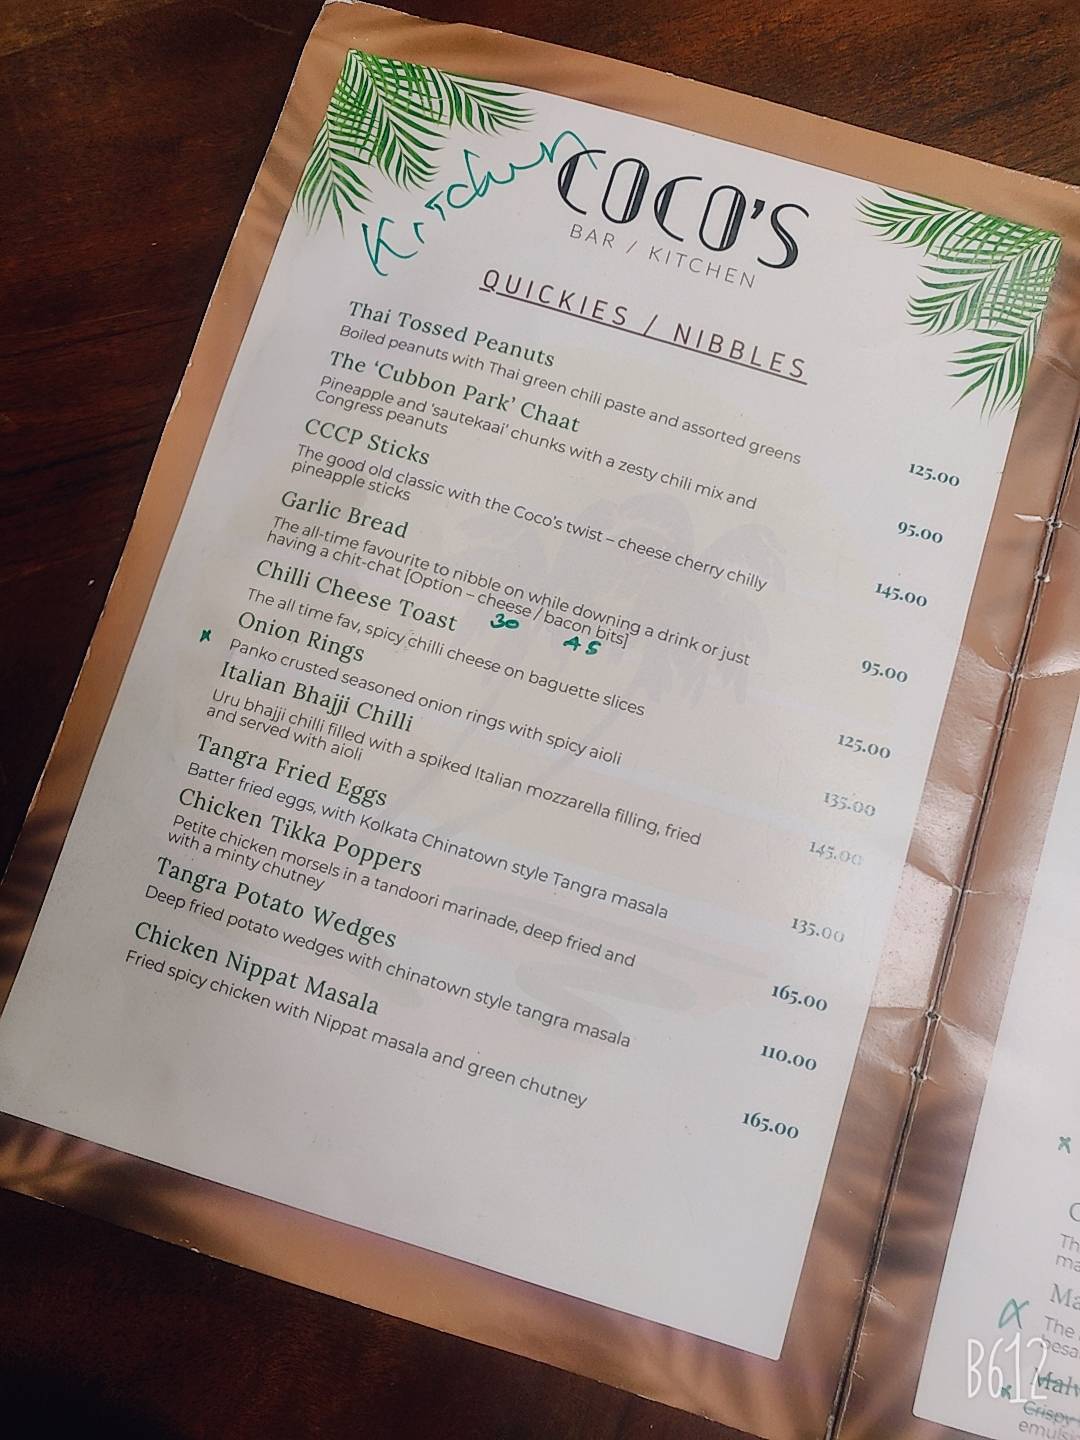 Kitchen
COCO'S
BAR / KITCHEN
QUICKIES / NIBBLES
Thai Tossed Peanuts
Boiled peanuts with Thai green chili paste and assorted greens
125.00
The 'Cubbon Park' Chaat
Pineapple and 'sautekaai' chunks with a zesty chili mix and
Congress peanuts
95.00
CCCP Sticks
The good old classic with the Coco's twist – cheese cherry chilly
pineapple sticks
145.00
Garlic Bread
The all-time favourite to nibble on while downing a drink or just
having a chit-chat [Option – cheese / bacon bits]
95.00
30
45
Chilli Cheese Toast
The all time fav, spicy chilli cheese on baguette slices
125.00
x
Onion Rings
Panko crusted seasoned onion rings with spicy aioli
135.00
Italian Bhajji Chilli
Uru bhajji chilli filled with a spiked Italian mozzarella filling, fried
and served with aioli
145.00
Tangra Fried Eggs
Batter fried eggs, with Kolkata Chinatown style Tangra masala
135.00
Chicken Tikka Poppers
Petite chicken morsels in a tandoori marinade, deep fried and
with a minty chutney
165.00
Tangra Potato Wedges
Deep fried potato wedges with chinatown style tangra masala
110.00
Chicken Nippat Masala
Fried spicy chicken with Nippat masala and green chutney
165.00
x
x
The
x
Crispy
B612